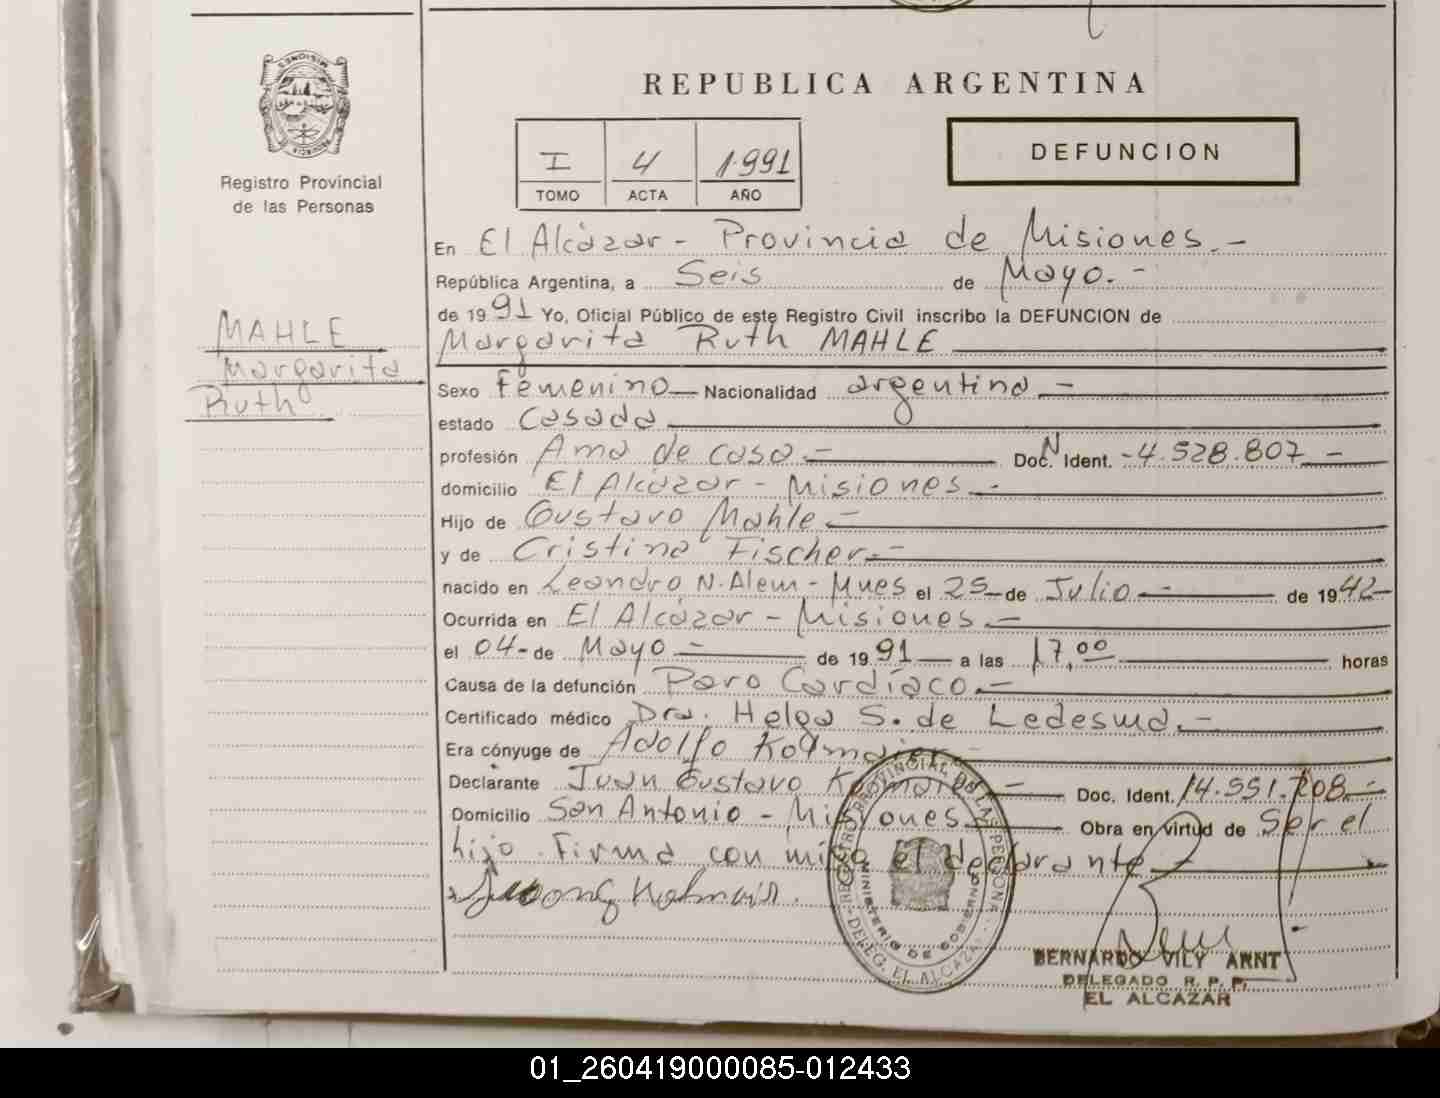 REPUBLICA ARGENTINA
MISIONES
PROVINCIA
Registro Provincial
de las Personas
I 4 1.991
TOMO ACTA AÑO
DEFUNCION
MAHLE
Margarita
Ruth
En El Alcázar - Provincia de Misiones.-
República Argentina, a Seis de Mayo.-
de 1991 Yo, Oficial Público de este Registro Civil inscribo la DEFUNCION de
Margarita Ruth MAHLE
Sexo Femenino Nacionalidad argentina -
estado Casada
profesión Ama de casa - Doc. N Ident. -4.528.807 -
domicilio El Alcázar - Misiones -
Hijo de Gustavo Mahle -
y de Cristina Fischer.-
nacido en Leandro N. Alem - Mnes el 25 de Julio de 1942-
Ocurrida en El Alcázar - Misiones.-
el 04- de Mayo - de 1991 a las 17,00 horas
Causa de la defunción Paro Cardíaco.-
Certificado médico Dra. Helga S. de Ledesma.-
Era cónyuge de Adolfo
Declarante Juan Gustavo - Doc. Ident. 14.551.208.-
Domicilio San Antonio - Misiones Obra en virtud de Ser el
hijo. Firma con migo el declarante -
REGISTRO PROVINCIAL DE LAS PERSONAS
MINISTERIO DE GOBIERNO
DELEG. EL ALCAZAR
BERNARDO VILY ARNT
DELEGADO R. P. P.
EL ALCAZAR
01_260419000085-012433